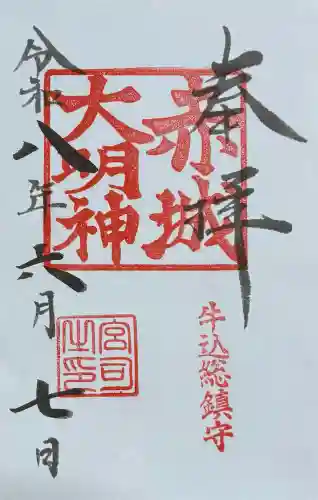 奉拝
赤城
大明神
牛込総鎮守
宮司
之印
令和八年六月七日